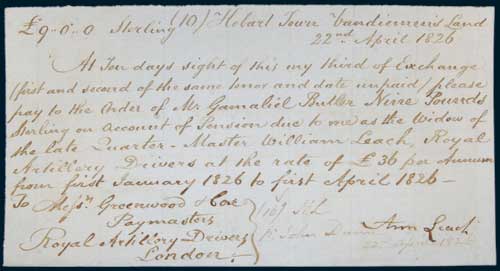 £9..0..0 Sterling (10) Hobart Town Vandiemen's Land
22nd April 1826
At Ten days sight of this my third of Exchange
(first and second of the same tenor and date unpaid) please
pay to the Order of Mr Gamaliel Butler Nine Pounds
Sterling on Account of Pension due to me as the Widow of
the late Quarter-Master William Leach, Royal
Artillery Drivers at the rate of £36 per Annum
from first January 1826 to first April 1826 —
To Messrs Greenwood & Coxe
Paymasters
Royal Artillery Drivers
London
John
Ann Leach
22 April 1826